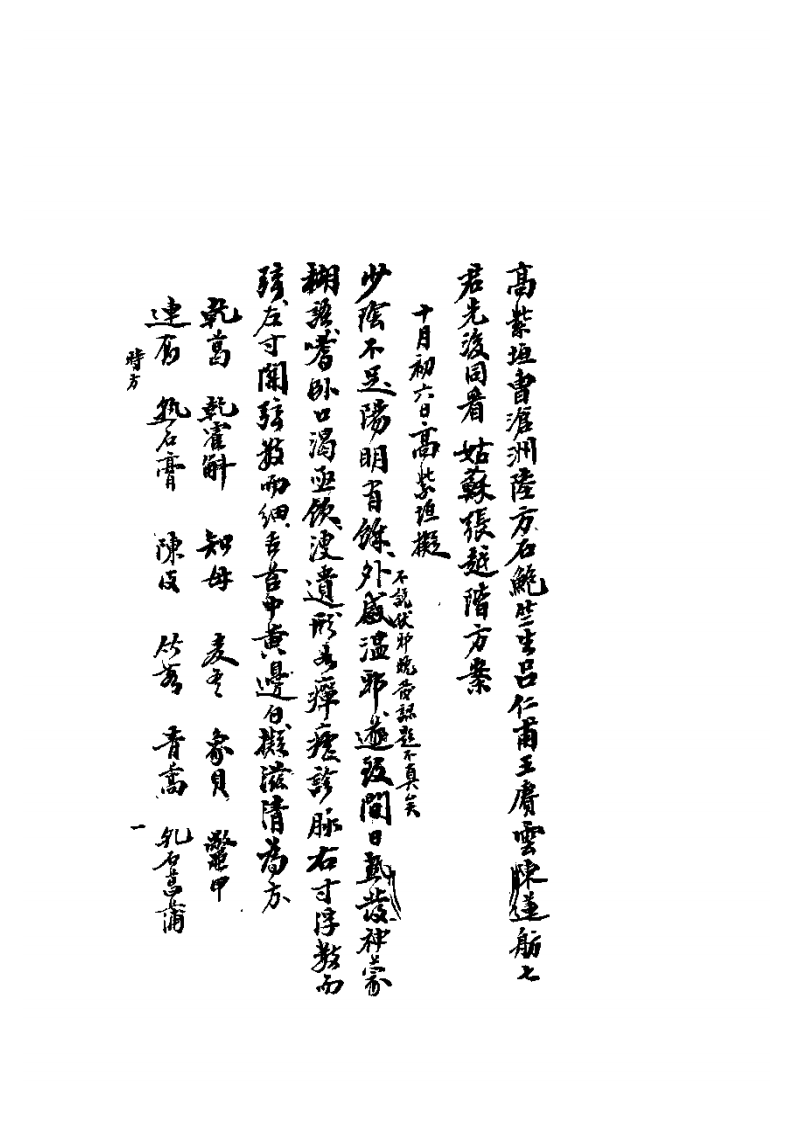 高紫垣曹滄洲陸方石鮑竺生呂仁甫王賡雲陳蓮舫七
君先後同看 姑蘇張越階方案
十月初六日高紫垣擬
不說伏邪晚發認題不真矣
少陰不足陽明有餘外感溫邪遂致間日熱發神蒙
糊語嗜卧口渴亟飲溲遺形為癉瘧診脉右寸浮數而
弦左寸關弦數而細舌苔中黃邊白擬滋清為方
乾葛 乾霍斛 知母 麦冬 象貝 鱉甲
連翹 熟石膏 陳皮 竹茹 青蒿 九石菖蒲
時方
一